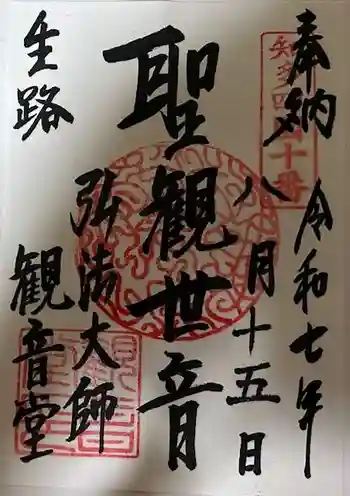 奉納
知多四国十番
令和七年
八月十五日
聖観世音
弘法大師
生路
観音堂